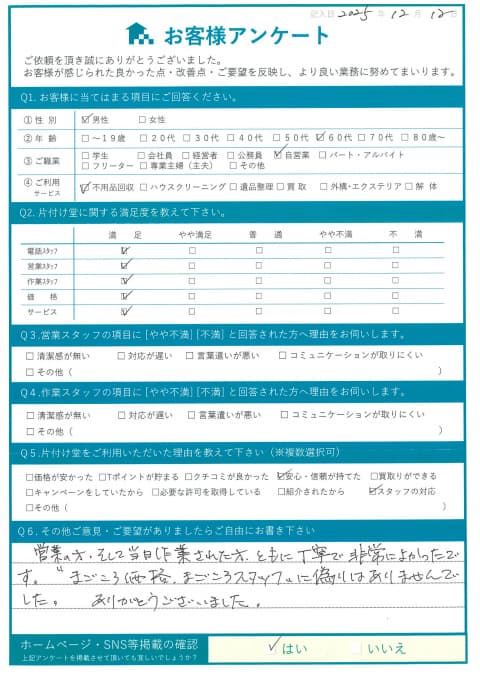 記入日 2025 年 12 月 12 日
お客様アンケート
ご依頼を頂き誠にありがとうございました。
お客様が感じられた良かった点・改善点・ご要望を反映し、より良い業務に努めてまいります。
Q1. お客様に当てはまる項目にご回答ください。
① 性 別 ☑男性 □女性
② 年 齢 □~19歳 □20代 □30代 □40代 □50代 ☑60代 □70代 □80歳~
③ ご職業 □学生 □会社員 □経営者 □公務員 ☑自営業 □パート・アルバイト
□フリーター □専業主婦（主夫） □その他
④ ご利用サービス ☑不用品回収 □ハウスクリーニング □遺品整理 □買 取 □外構・エクステリア □解 体
Q2. 片付け堂に関する満足度を教えて下さい。
満 足 やや満足 普 通 やや不満 不 満
電話スタッフ ☑ □ □ □ □
営業スタッフ ☑ □ □ □ □
作業スタッフ ☑ □ □ □ □
価 格 ☑ □ □ □ □
サービス ☑ □ □ □ □
Q3.営業スタッフの項目に [やや不満] [不満] と回答された方へ理由をお伺いします。
□清潔感が無い □対応が遅い □言葉遣いが悪い □コミュニケーションが取りにくい
□その他（ ）
Q4.作業スタッフの項目に [やや不満] [不満] と回答された方へ理由をお伺いします。
□清潔感が無い □対応が遅い □言葉遣いが悪い □コミュニケーションが取りにくい
□その他（ ）
Q5.片付け堂をご利用いただいた理由を教えて下さい（※複数選択可）
□価格が安かった □Tポイントが貯まる □クチコミが良かった ☑安心・信頼が持てた □買取りができる
□キャンペーンをしていたから □必要な許可を取得している □紹介されたから ☑スタッフの対応
□その他（ ）
Q6.その他ご意見・ご要望がありましたらご自由にお書き下さい
営業の方、そして当日作業された方、ともに丁寧で非常によかったで
す。"まごころ価格、まごころスタッフ"に偽りはありませんで
した。 ありがとうございました。
ホームページ・SNS等掲載の確認 ☑はい □いいえ
上記アンケートを掲載させて頂いても宜しいでしょうか？